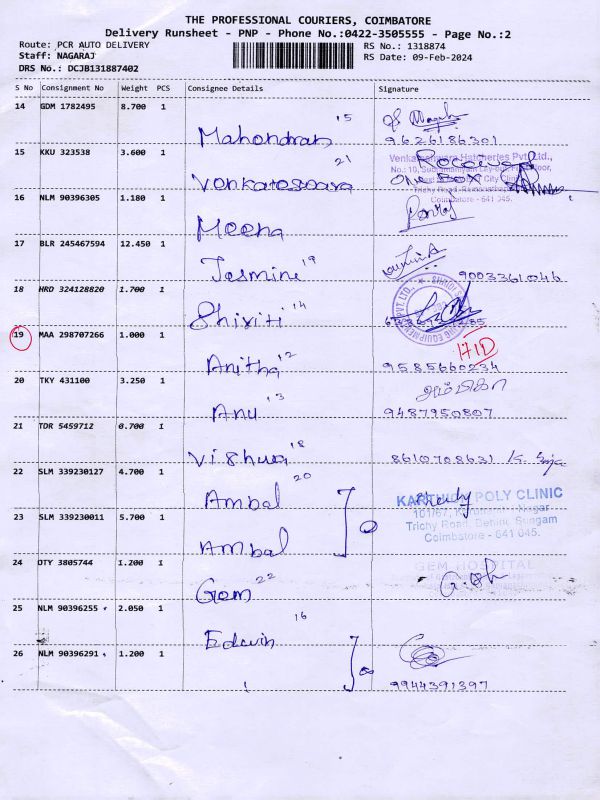 THE PROFESSIONAL COURIERS, COIMBATORE
Delivery Runsheet - PNP - Phone No.:0422-3505555 - Page No.:2
Route: PCR AUTO DELIVERY
RS No.: 1318874
Staff: NAGARAJ
RS Date: 09-Feb-2024
DRS No.: DCJB131887402
S No Consignment No Weight PCS Consignee Details Signature
14 GDM 1782495 8.700 1
Mahendran 15
9626186301
15 KKU 323538 3.600 1
Venkateswara 21
Received
one Box
Venkateshwara Hatcheries Pvt. Ltd.,
Coimbatore - 641 045.
16 NLM 90396305 1.180 1
Meena
17 BLR 245467594 12.450 1
Jasmine 19
9003361046
18 HRD 324128820 1.700 1
Shiviti 14
19 MAA 298707266 1.000 1
Anitha 12
171D
9585660234
20 TKY 431100 3.250 1
Anu 13
அம்பிகா
9487950807
21 TDR 5459712 0.700 1
Vishwa 18
8610708631
22 SLM 339230127 4.700 1
Ambal 20
KARTHICK POLY CLINIC
Trichy Road, Behind Sungam
Coimbatore - 641 045.
23 SLM 339230011 5.700 1
Ambal
24 OTY 3805744 1.200 1
Gem 22
GEM HOSPITAL
25 NLM 90396255 2.050 1
Edwin 16
26 NLM 90396291 1.200 1
9944391397